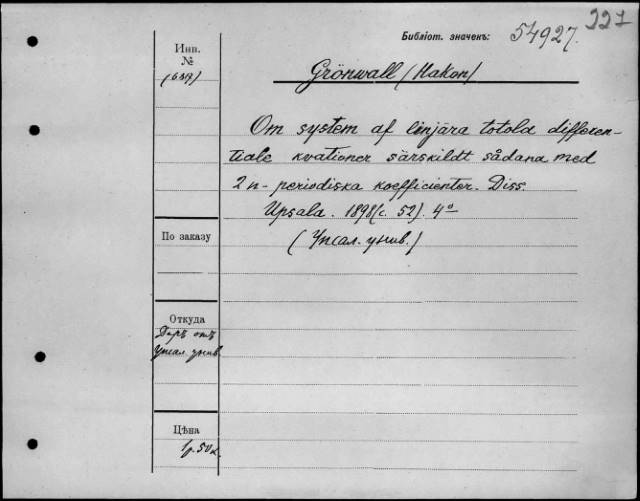 221
Библіот. значекъ: 54927.
Инв.
№
Grönwall (Hakon)
Om system af linjära totola differen-
tiale kvationer särskildt sådana med
2n-periodiska koefficienter. Diss.
Upsala. 1898 (с. 52). 4°
По заказу
(Упсал. унив.)
Откуда
Даръ отъ
Упсал. унив.
Цѣна
1р. 50к.